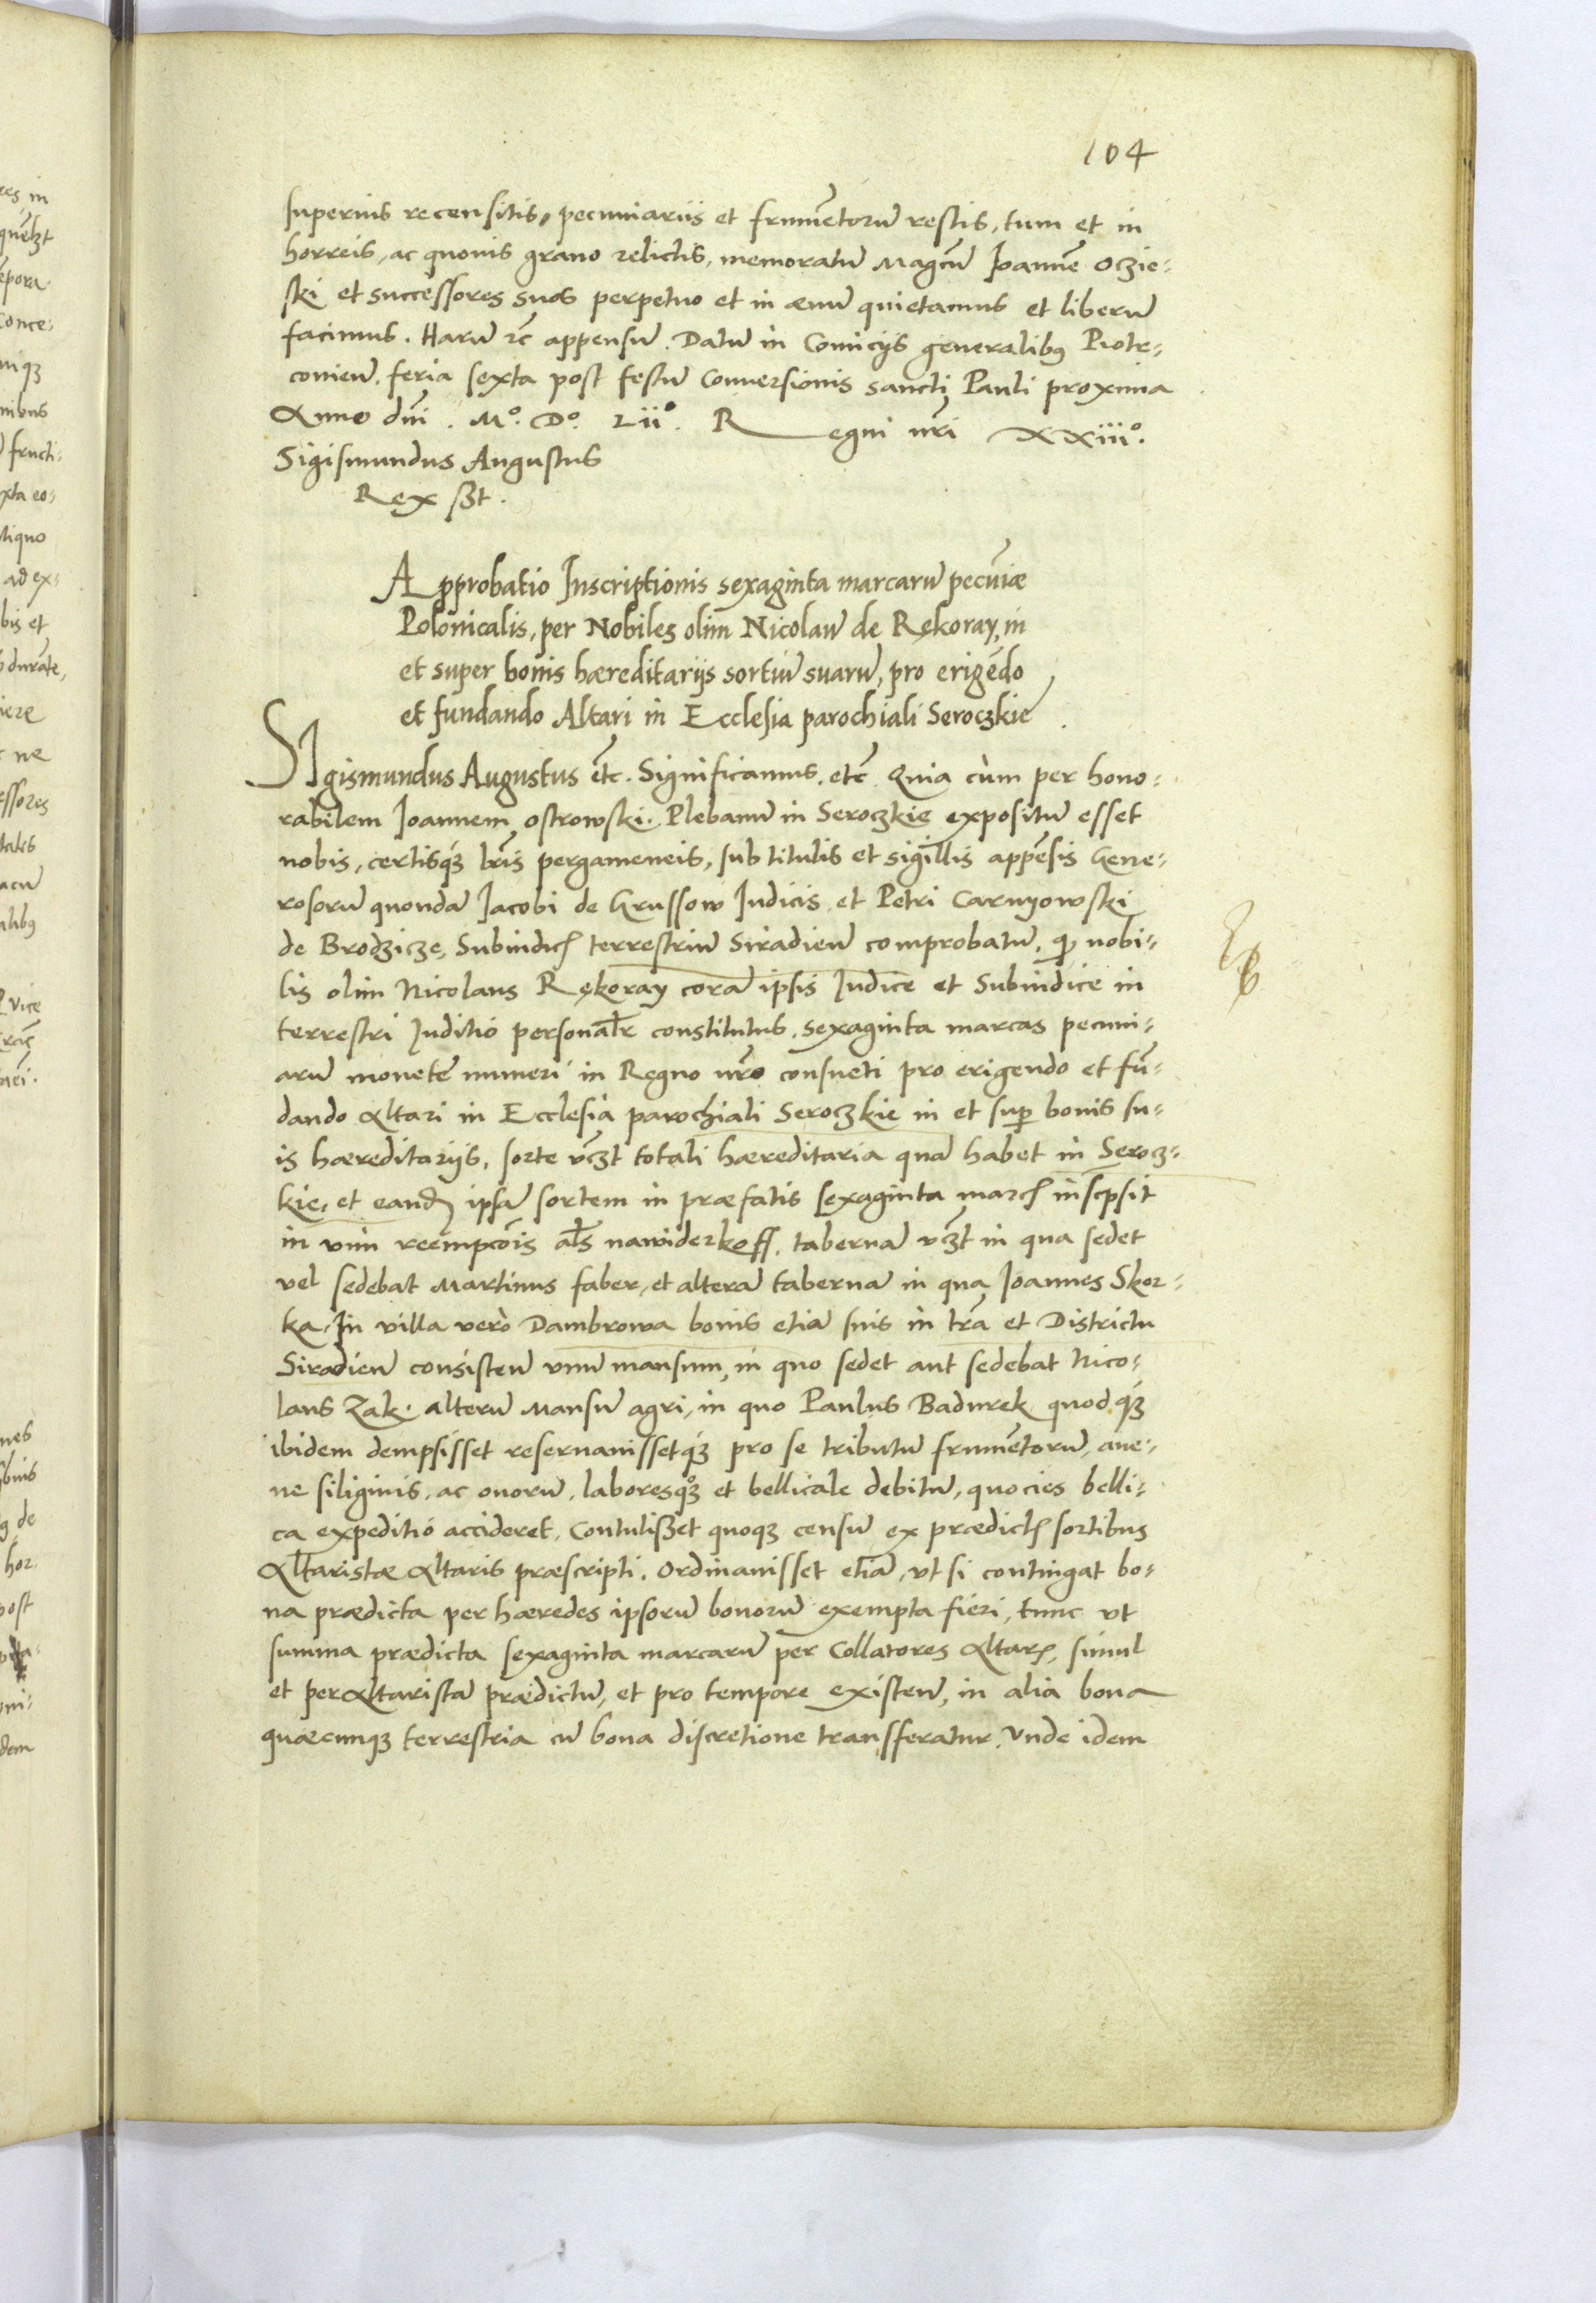 104
superius recensitis, pecuniariis et frumētorū restis, tum et in
horreis, ac quovis grano relictis, memoratū Magcū Ioannē Oczie-
ski et successores suos perpetuo et in ævū quietamus et liberū
facimus. Harū &c appensū. Datū in Comicijs generalibꝰ Piotr-
covieñ. feria sexta post festū Conversionis sancti Pauli proxima
Anno dñi. Mº. Dº. Liiº. Regni nr̃i XXiiiº.
Sigismundus Augustus
Rex sßt.
Approbatio Inscriptionis sexaginta marcarū pecuniæ
Polonicalis, per Nobiles olim Nicolaū de Rękoray, in
et super bonis hæreditarijs sortiū suarū, pro erigēdo
et fundando Altari in Ecclesia parochiali Seroczkie.
Sigismundus Augustus etc. Significamus. etc̃ Quia cùm per hono-
rabilem Ioannem ostrowski. Plebanū in Seroczkie expositū esset
nobis, certisqꝫ lr̃is pergameneis, sub titulis et sigillis appēsis Gene-
rosorū quondā Iacobi de Grussow Iudicis et Petri Carnyowski
de Brodzicze, Subiudicꝭ terrestriū Siradieñ comprobatū, ꝙ nobi-
lis olim Nicolaus Rękoray corā ipsis Iudice et Subiudice in
terrestri Iuditio personalr̃ constitutus, sexaginta marcas pecuni-
arū monetę numeri in Regno nr̃o consueti pro erigendo et fū-
dando Altari in Ecclesia parochiali Seroczkie in et suꝑ bonis su-
is hæreditarijs, sorte vcꝫt totali hæreditaria quā habet in Serocz-
kie, et eandꝫ ipsā sortem in præfatis sexaginta marcꝭ inscpsit
in vim reempcõis al̃s nawiderkoff, tabernā vcꝫt in qua sedet
vel sedebat Martinus faber, et alterā tabernā in qua Ioannes Skor-
ka, In villa verò Dambrowa bonis etiā suis in tr̃a et Districtu
Siradieñ consisteñ vnū mansum, in quo sedet aut sedebat Nico-
laus Zak. alterū Mansū agri, in quo Paulus Badurek quodqꝫ
ibidem dempsisset reservavissetqꝫ pro se tributū frumētorū, ave-
ne siliginis, ac ovorū, laboresqꝫ et bellicale debitū, quocies belli-
ca expeditio accideret, Contulißet quoqꝫ censū ex prædictꝭ sortibus
Altaristæ Altaris præscripti. Ordinavisset etiā, vt si contingat bo-
na prædicta per hæredes ipsorū bonorū exempta fieri, tunc vt
summa prædicta sexaginta marcarū per Collatores Altarꝭ, simul
et per Altaristā prædictū, et pro tempore existeñ, in alia bona
quæcunqꝫ terrestria cū bona discretione transfferatur. Vnde idem